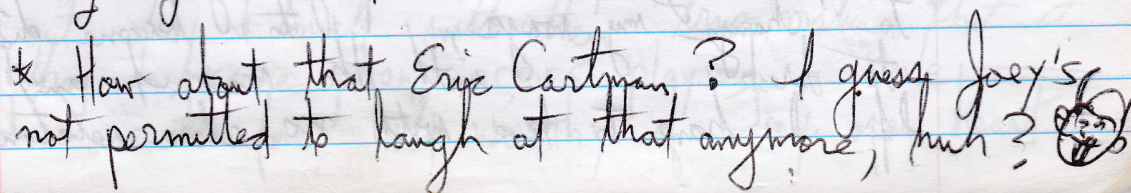 * How about that Eric Cartman? I guess Joey's
not permitted to laugh at that anymore, huh?